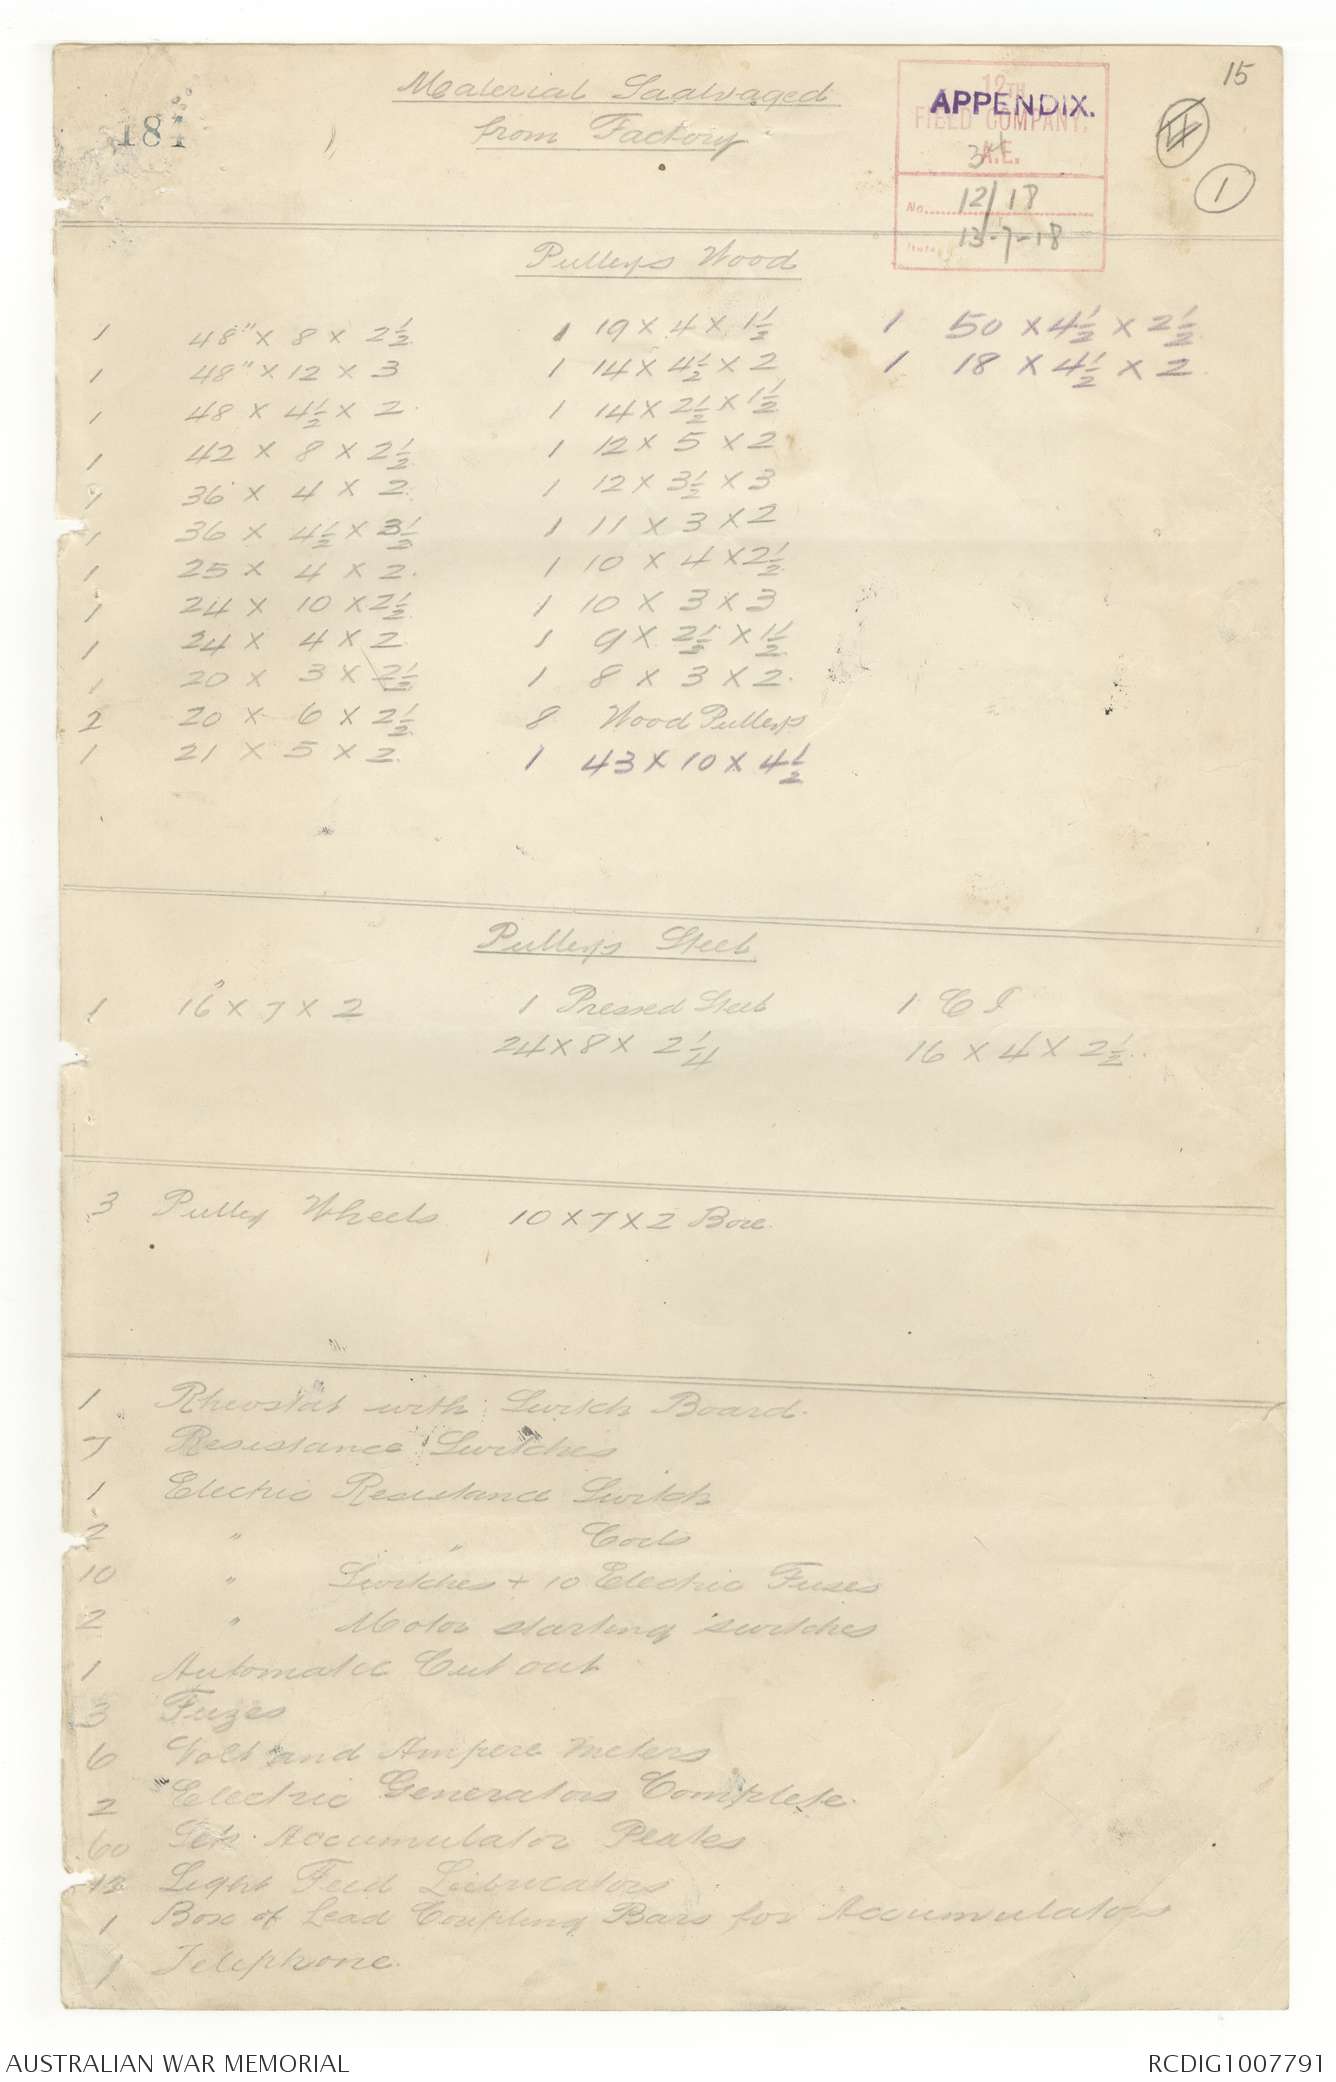 15
184
Material Saalvaged
from Factory
12TH
FIELD COMPANY,
A.E.
APPENDIX.
No. 12/18
Date 13-7-18
1
Pulleys Wood
1 48" x 8 x 2½
1 48" x 12 x 3
1 48 x 4½ x 2
1 42 x 8 x 2½
1 36 x 4 x 2
1 36 x 4½ x 3½
1 25 x 4 x 2
1 24 x 10 x 2½
1 24 x 4 x 2
1 20 x 3 x 2½
2 20 x 6 x 2½
1 21 x 5 x 2
1 19 x 4 x 1½
1 14 x 4½ x 2
1 14 x 2½ x 1½
1 12 x 5 x 2
1 12 x 3½ x 3
1 11 x 3 x 2
1 10 x 4 x 2½
1 10 x 3 x 3
1 9 x 2½ x 1½
1 8 x 3 x 2
8 Wood Pulleys
1 43 x 10 x 4½
1 50 x 4½ x 2½
1 18 x 4½ x 2
Pulleys Steel
1 16" x 7 x 2
1 Pressed Steel
24 x 8 x 2¼
1 C I
16 x 4 x 2½
3 Pulley Wheels 10 x 7 x 2 Bore
1 Rheostat with Switch Board.
7 Resistance Switches
1 Electric Resistance Switch
2 " " Coils
10 " Switches + 10 Electric Fuses
2 " Motor starting switches
1 Automatic Cut out
3 Fuzes
6 Volt and Ampere meters
2 Electric Generators Complete.
60 Accumulator Plates
Light Feed Lubricators
1 Box of Lead Coupling Bars for Accumulators
1 Telephone.
AUSTRALIAN WAR MEMORIAL
RCDIG1007791